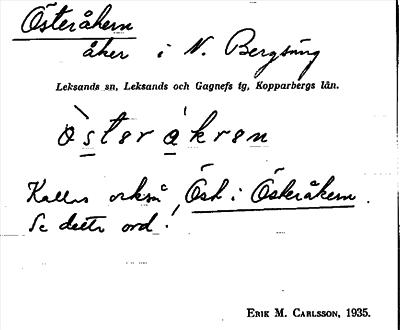 Österåkern
åker i N. Bergsäng
Leksands sn, Leksands och Gagnefs tg, Kopparbergs län.
ò̀stərákrən
Kallas också Öst i Österåkern.
Se detta ord!
ERIK M. CARLSSON, 1935.